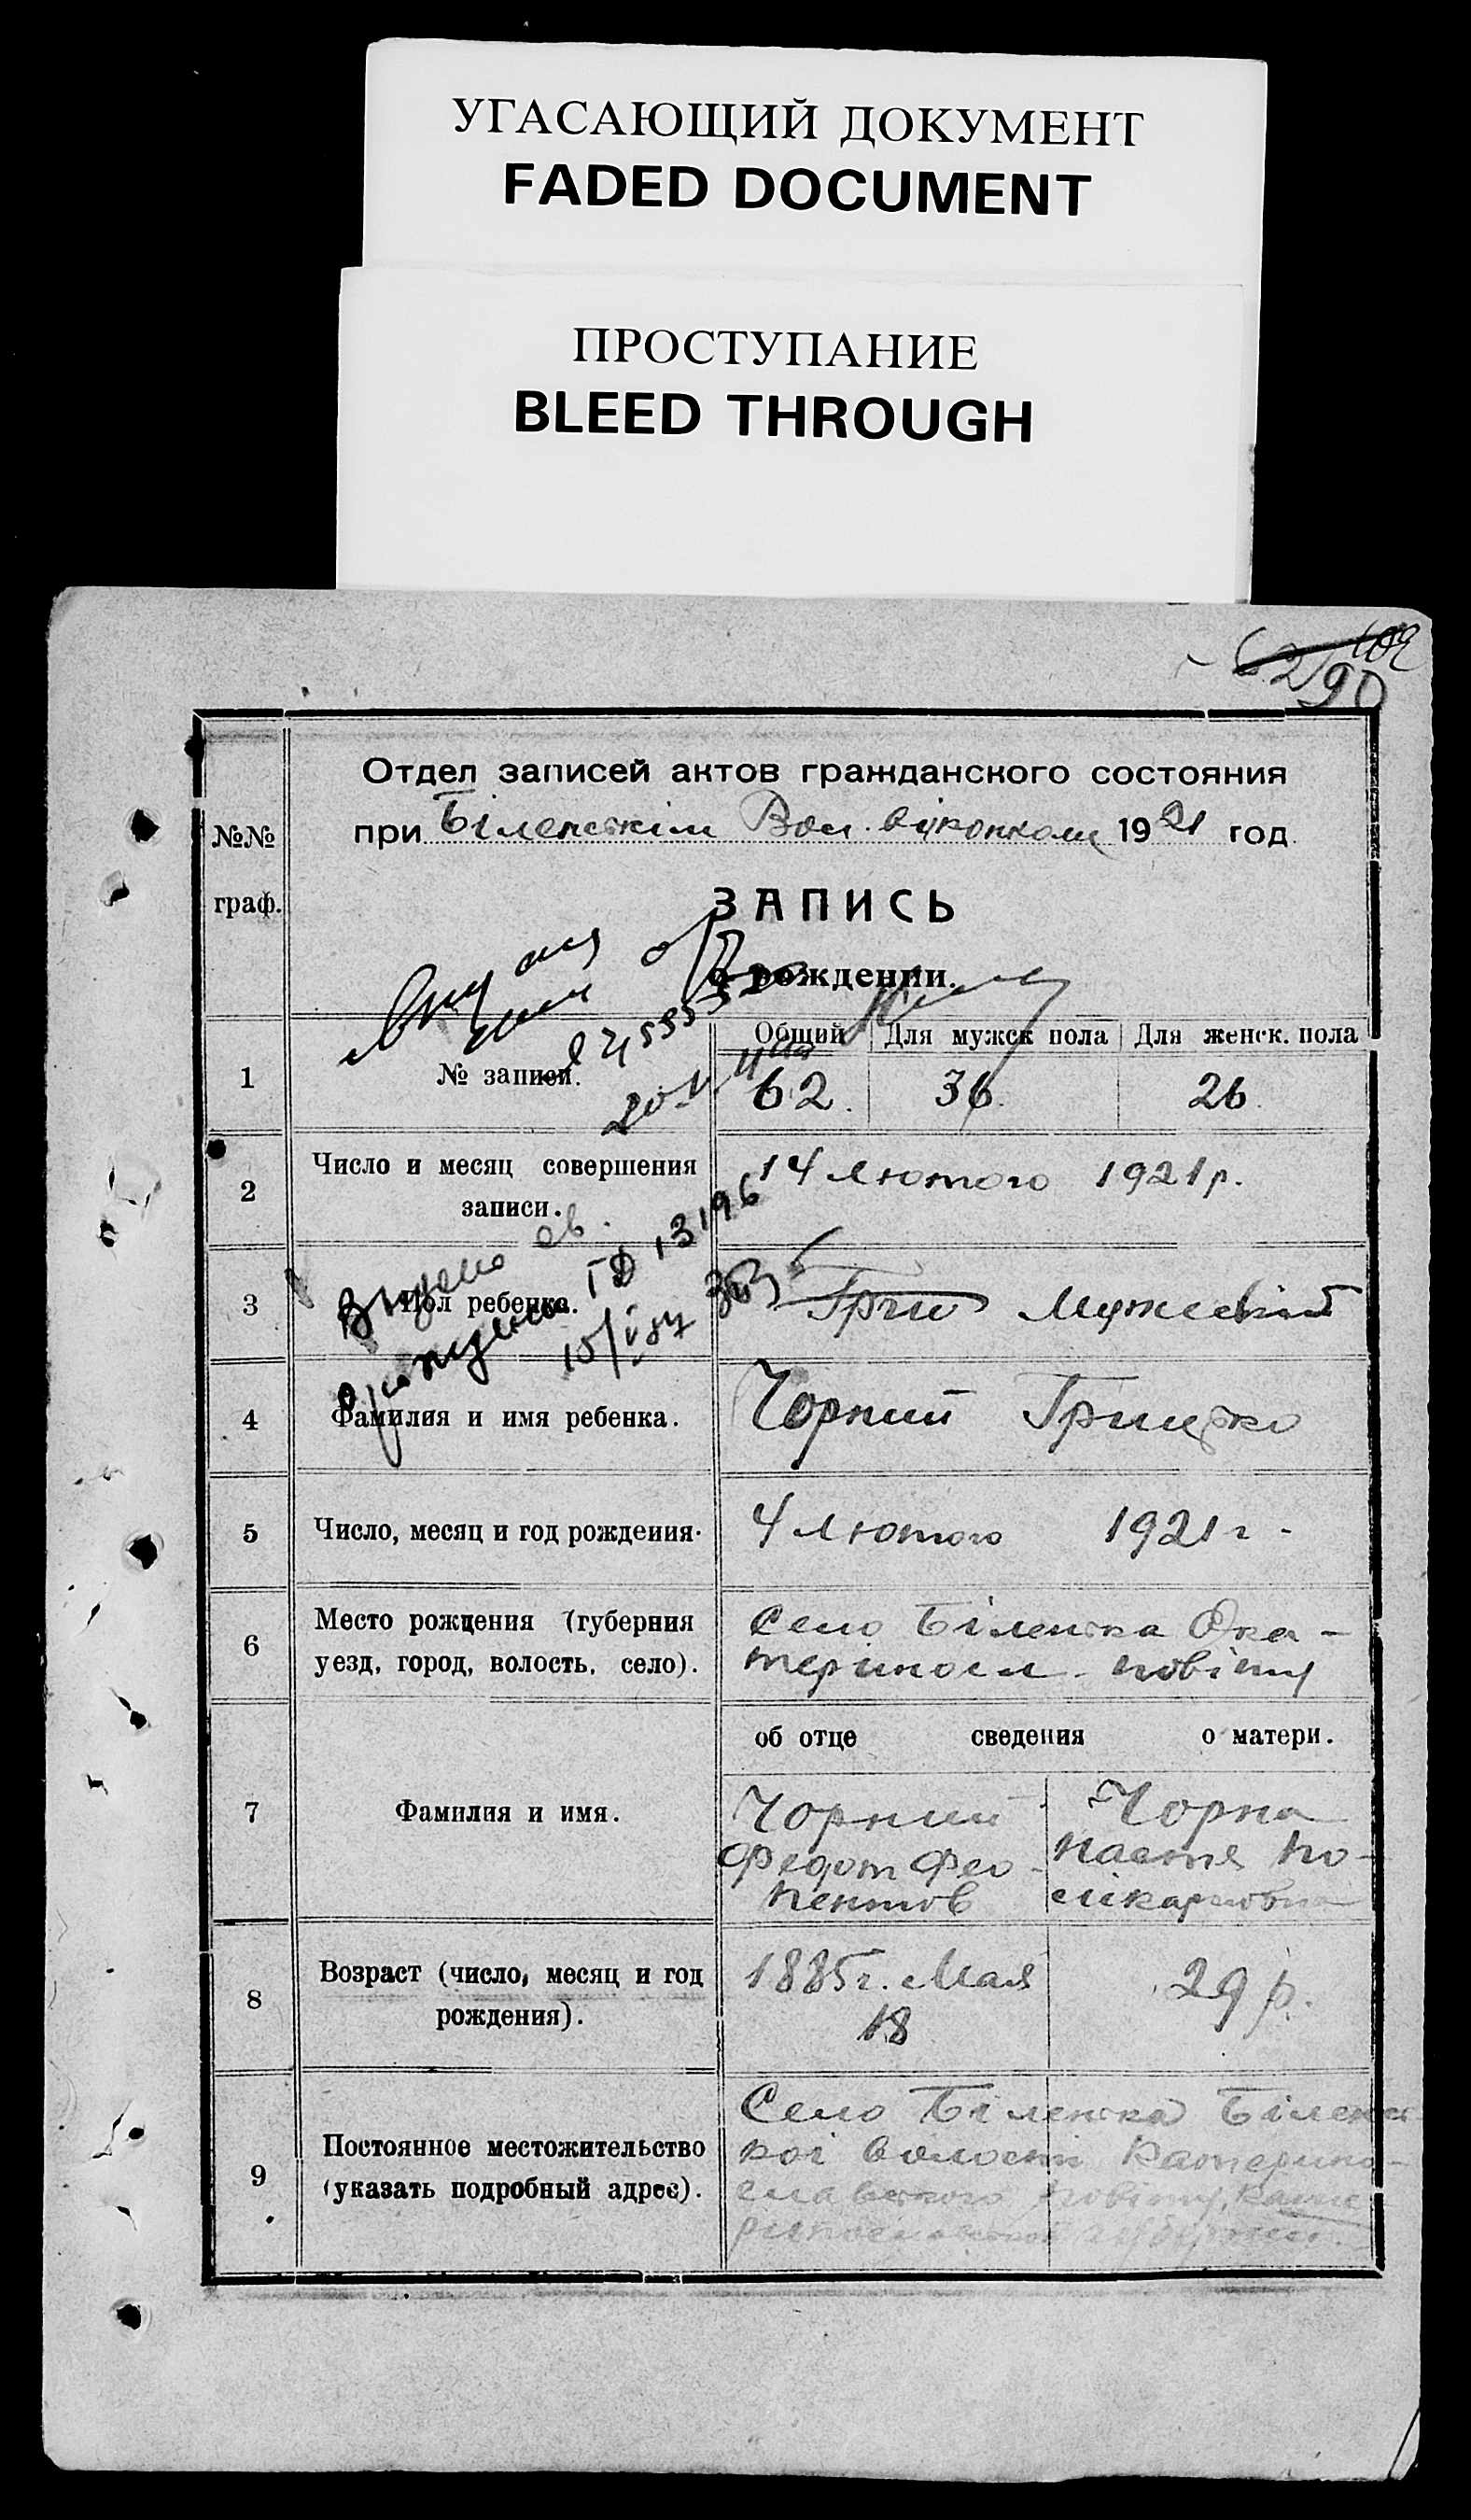 УГАСАЮЩИЙ ДОКУМЕНТ
FADED DOCUMENT
ПРОСТУПАНИЕ
BLEED THROUGH
62 90
№№ граф.
Отдел записей актов гражданского состояния
при Біленськім Вол. виконкомі 1921 год
ЗАПИСЬ
о рождении.
Общий Для мужск пола Для женск. пола
1 № записи. 62. 36. 26.
2 Число и месяц совершения 14 Лютого 1921 р.
записи.
Выдано св.
о рождении ІД 13196
3 Пол ребенка. Мужеський
4 Фамилия и имя ребенка. Чорний Грицько
5 Число, месяц и год рождения. 4 Лютого 1921 г.
6 Место рождения (губерния Село Біленька Ока-
уезд, город, волость, село). териносл. повіту
об отце сведения о матери.
7 Фамилия и имя. Чорний Чорна
Федот Фео- Настя По-
пентов лікарповна
8 Возраст (число, месяц и год 1885 г. Мая 29 р.
рождения). 18
9 Постоянное местожительство Село Біленька Біленсь
(указать подробный адрес). кої волости Катерино-
славського повіту, Кате
ринославської губернии.